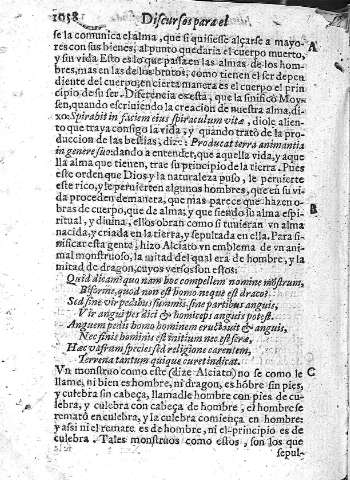 1058 Discursos para el
se la comunica el alma, que si quisiesse alçarse a mayo-
res con sus bienes, al punto quedaria el cuerpo muerto,
y sin vida Esto es lo que passa en las almas de los hom-
bres, mas en las de los brutos, como tienen el ser depen
diente del cuerpo, en cierta manera es el cuerpo el prin
cipio de su ser. Diferencia es esta, que la sinificò Moy-
sen, quando escriuiendo la creacion de nuestra alma, di-
xo: Spirabit in faciem eius spiraculum vitæ, diole alien-
to que traya consigo la vida, y quando tratò de la pro-
duccion de las bestias, dize: Producat terra animantia
in genere suo dando a entender, que aquella vida, y aque
lla alma que tienen, trae su principio de la tierra. Pues
este orden que Dios y la naturaleza puso, le peruierte
este rico, y le peruierten algunos hombres, que en su vi-
da proceden de manera, que mas parece que hazen o-
bras de cuerpo, que de alma, y que siendo su alma espi-
ritual, y diuina, ellos obran como si tuuieran vn alma
nacida, y criada en la tierra, y sepultada en ella. Para si-
nificar esta gente, hizo Alciato vn emblema de vn ani-
mal monstruoso, la mitad del qual era de hombre, y la
mitad de dragon, cuyos versos son estos:
Quid dicam? quo nam hoc compellem nomine mõstrum,
Biforme, quod non est homo neque est draco?
Sed sine vir pedibus summis sine partibus anguis,
Vir anguipes dici & homiceps anguis potest.
Anguem pedit homo hominem eructauit & anguis,
Nec finis hominis est initium nec est feræ,
Hac vafram species id religione carentem,
Terrena tantum quique curet indicat.
Vn monstruo como este (dize Alciato) no se como le
llame, ni bien es hombre, ni dragon, es hõbre sin pies,
y culebra sin cabeça, llamadle hombre con pies de cu-
lebra, y culebra con cabeça de hombre, el hombre se
rematò en culebra, y la culebra comiença en hombre:
y assi ni el remate es de hombre, ni el principio es de
culebra. Tales monstruos como estos, son los que
sepul-
A
B
C